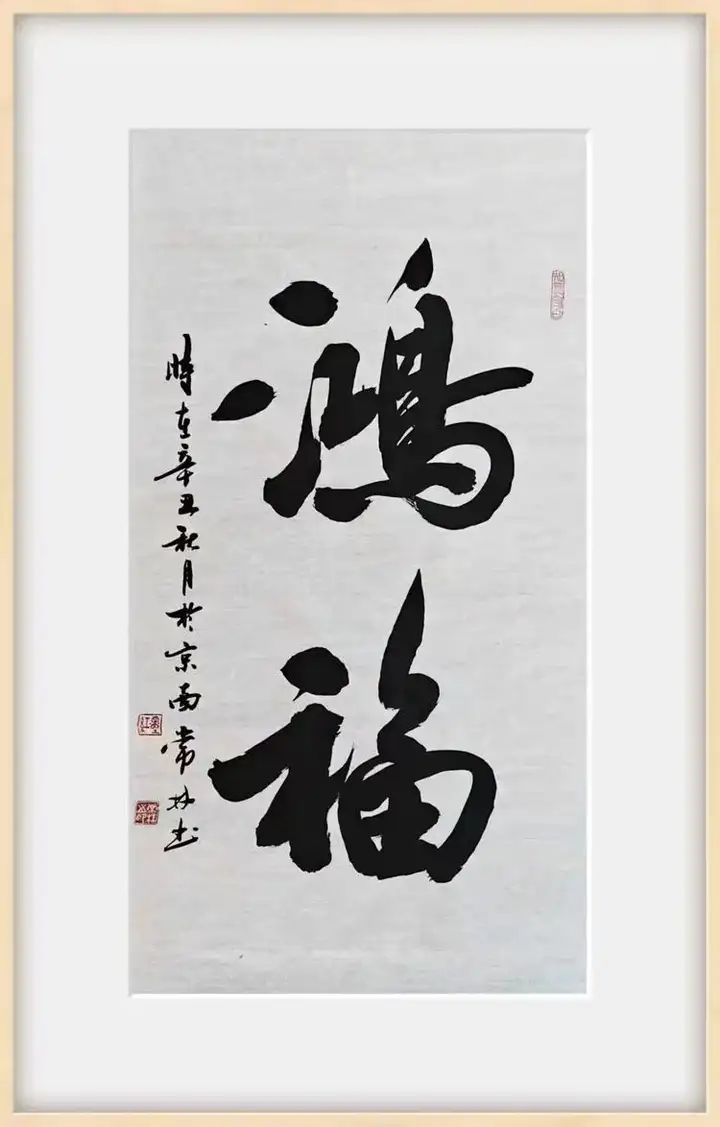 鴻福
時在辛丑秋月於京南常林书